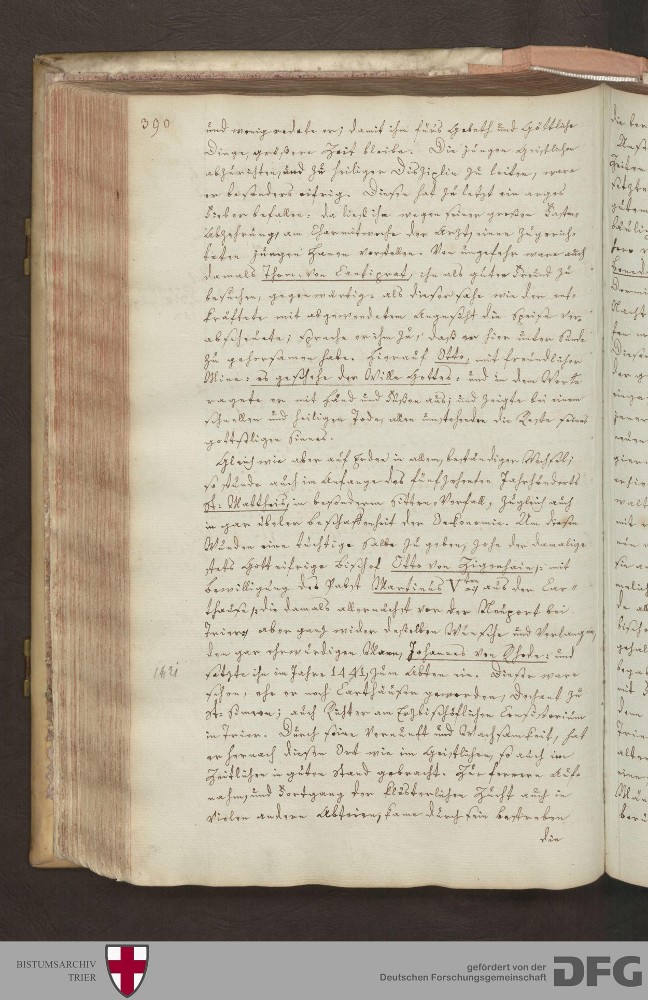 390
und wenig redete er; damit ihm fürs Gebeth und Göttliche
Dinge, größere Zeit bleibe. Die jungen Geistlichen
abzurichten, und zu heiligen Disziplin zu leiten, ware
er besonders eifrig. Diesen hat zu letzt ein arges
Fieber befallen: da ließ ihm wegen seiner großen
Abzehrung, am Charmitwoche der Arzt, einen zugerich-
teten jungen Hanen vorstellen. Von ungefehr ware auch
damals Thom: von Cantiprat, ihn als guter Freund zu
besuchen, gegenwärtig: als dieser sahe wie der ent-
kräftete mit abgewendetem Angesicht die Speise ver-
abscheuete; sprache er ihm zu, daß er hier unter Sünde
zu gehorsamen habe. Hierauf Otto, mit freundlicher
Mine: es geschehe der Wille Gottes: und in dem Worte
mit Händ und Füßen aus; und zeigte bei einem
schnellen und heiligen Tode, allen umstehenden die seines
gottseligen Sinnes.
Gleich wie aber auf Erden in allem, beständiger Wechsel;
so stunde auch im Anfange des fünfzehenten Jahrhunderts
St: Mattheis, in besonderem Sitten-Verfall, zugleich auch
in gar übeler beschaffenheit der Oeckonomie. Um diesen
Wunden eine tüchtige Salbe zu geben, zohe der damalige
stets Gotteifrige Bischof Otto von Zigenhain: mit
bewilligung des Pabst Martinus V ten aus der Car-
thause, die damals allernächst vor der Neuport bei
Trier, aber ganz wider desselben Wünsche und Verlangen,
den gar ehrwürdigen Mann, Johannes von Rhode: und
1421
setzte ihn im Jahre 1441, zum Abten ein. Dieser ware
schon, ehe er noch Carthäuser geworden, Dechant zu
St: Simeon; auch Richter am Erzbischöflichen Consistorium
in Trier. Durch seine Vernunft und Wachsamkeit, hat
er hernach diesen Ort wie im Geistlichen, so auch im
Zeitlichen in guten Stand gebracht. Zur ferrern Auf-
nahm, und Fortgang der klösterlichen Zucht auch in
vielen andern Abteien, kame durch sein bestreben
die
BISTUMSARCHIV
TRIER
gefördert von der
Deutschen Forschungsgemeinschaft
DFG